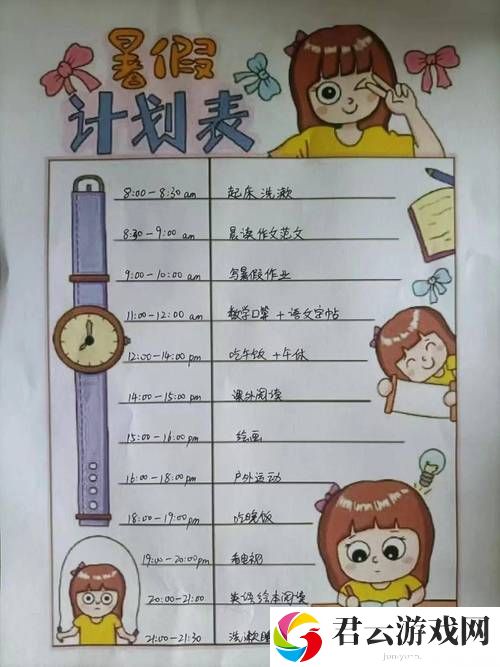 暑假
计划表
8:00-8:30 am 起床 洗漱
8:30-9:00 am 晨读 作文范文
9:00-10:00 am 写暑假作业
11:00-12:00 am 数学口算+语文字帖
12:00-14:00 pm 吃午饭+午休
14:00-15:00 pm 课外阅读
15:00-16:00 pm 绘画
16:00-18:00 pm 户外运动
18:00-19:00 pm 吃晚饭
19:00-20:00 pm 看电视
20:00-21:00 英语绘本阅读
21:00-21:30 洗漱
君云游戏网